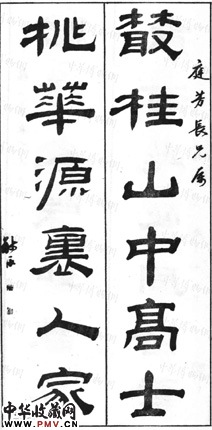 庭芳長兄属
叢桂山中高士
桃華源裏人家
中华收藏网
www.PMV.cn